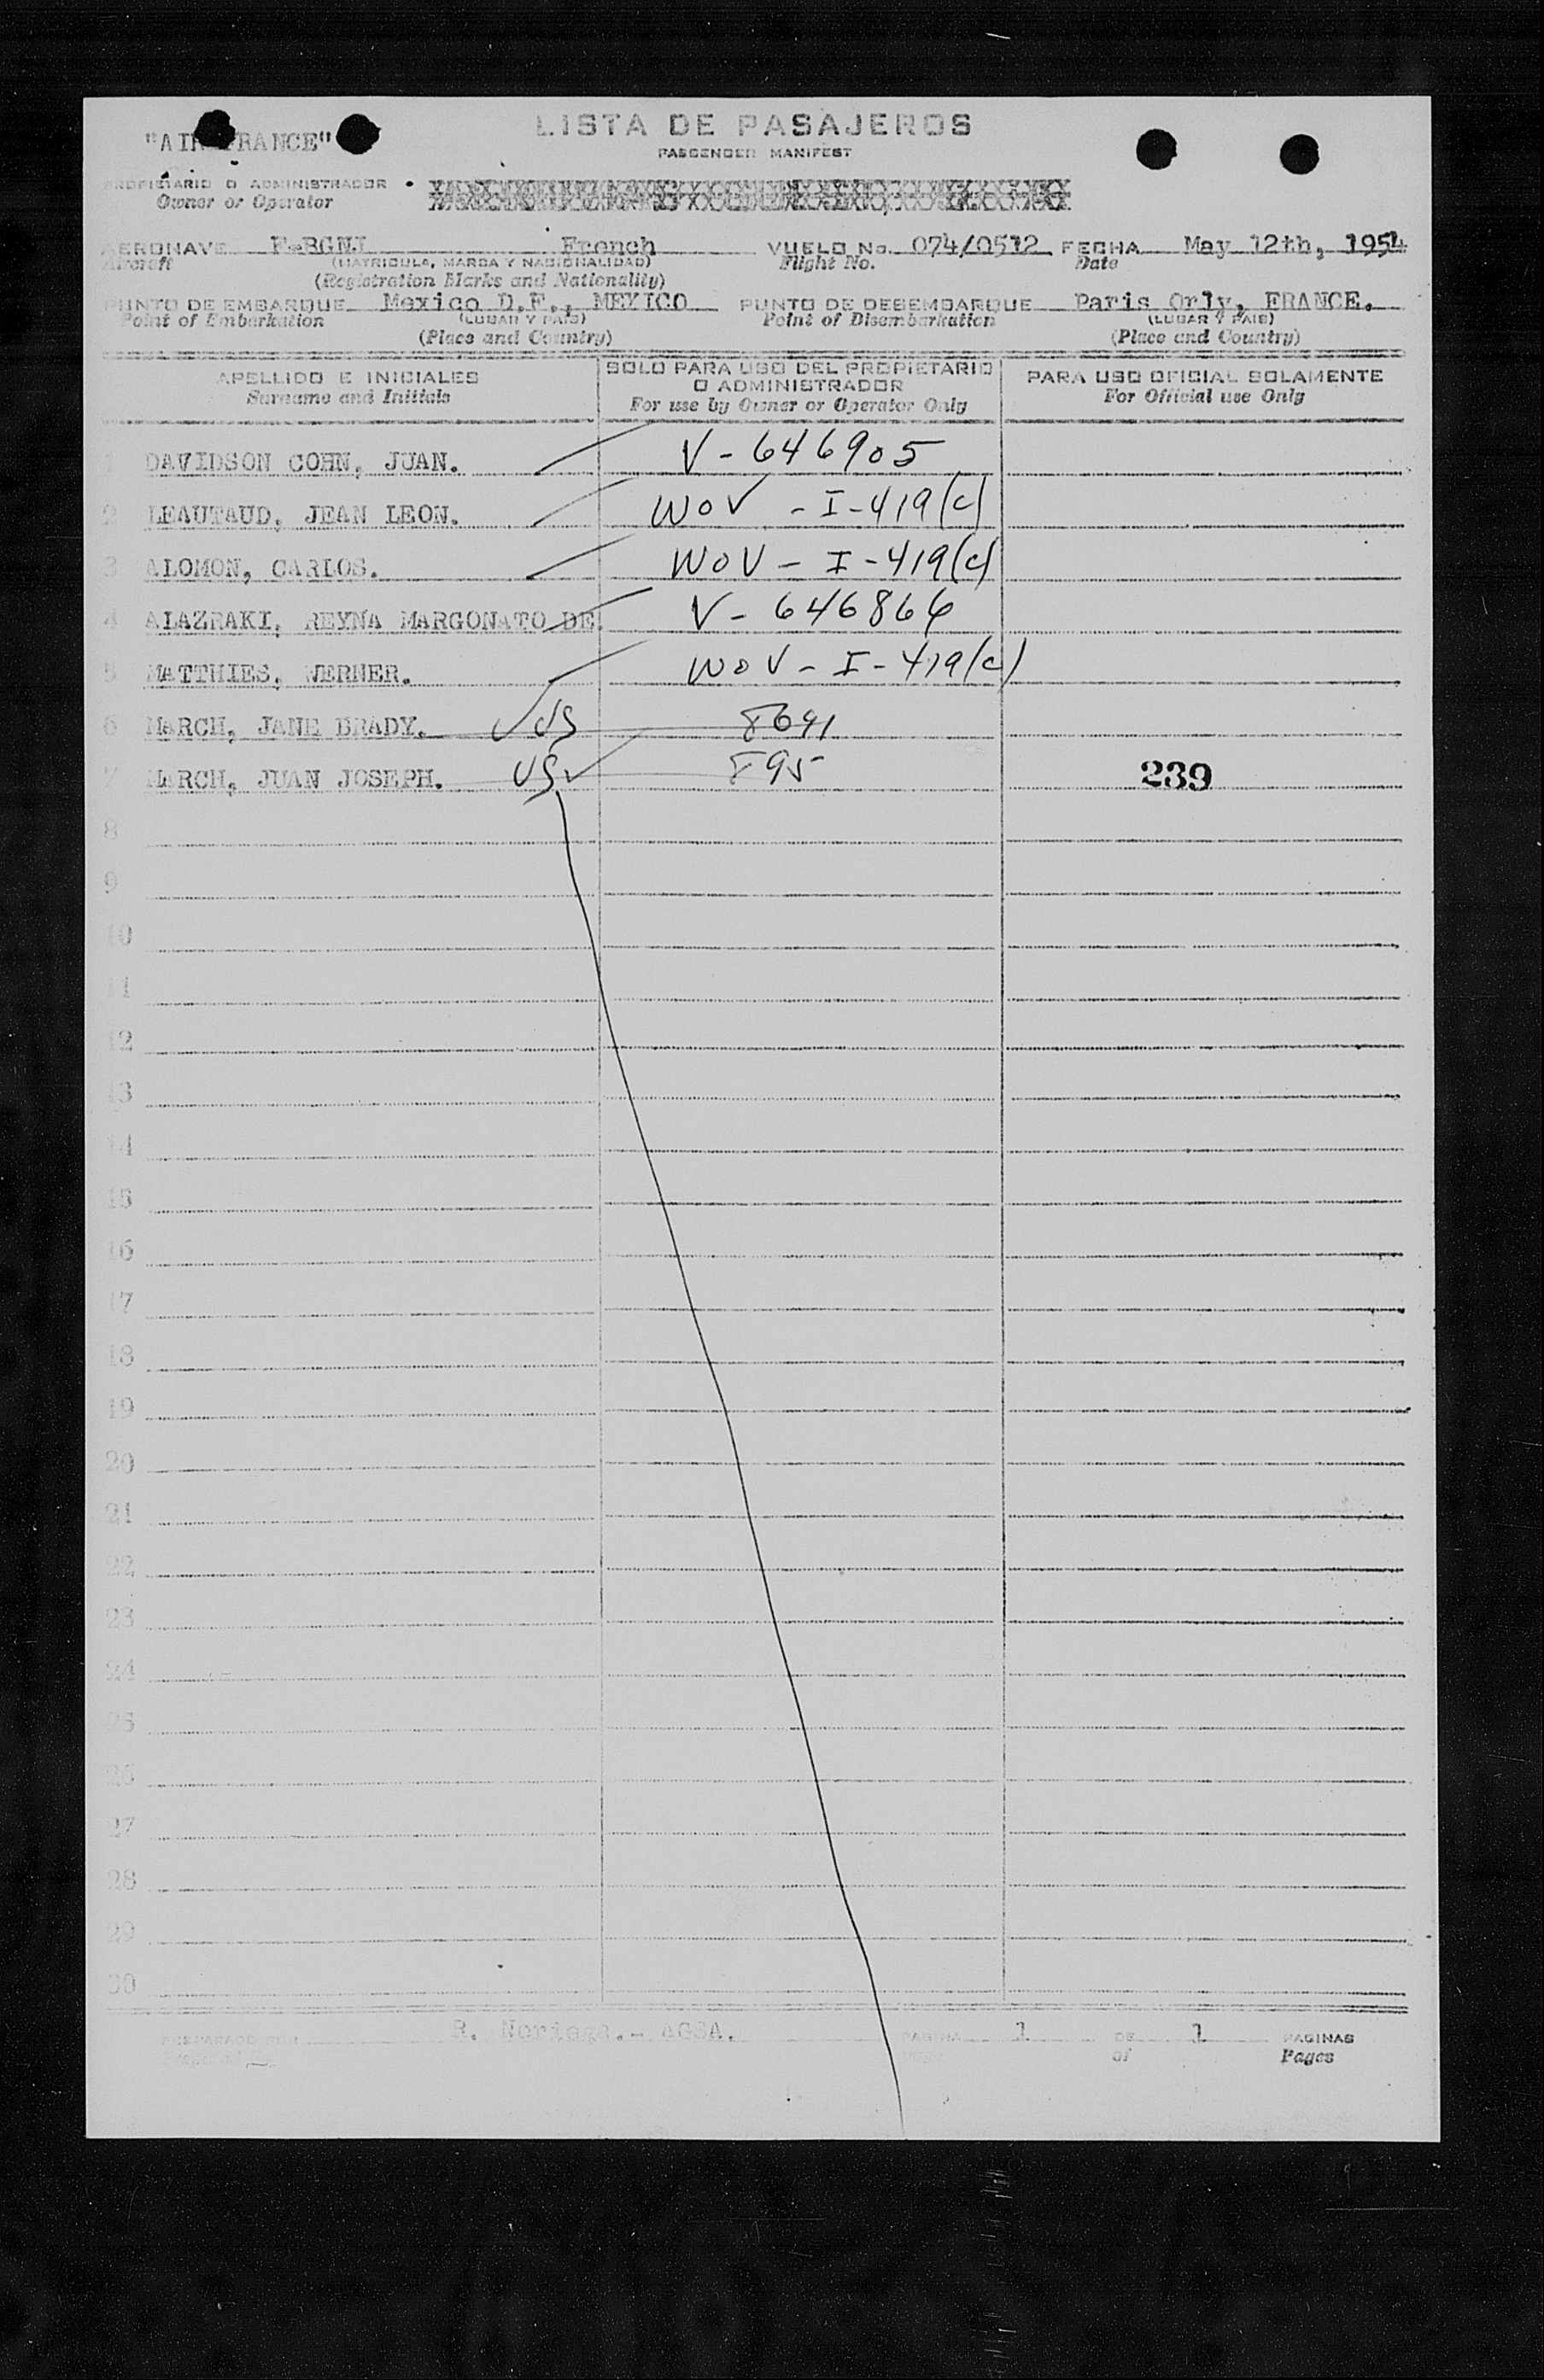 LISTA DE PASAJEROS
"AIR FRANCE"
PASSENGER MANIFEST
PROPIETARIO O ADMINISTRADOR
Owner or Operator
AERONAVE F-BGNJ French VUELO No. 074/0512 FECHA May 12th, 1954
Aircraft (MATRICULA, MARCA Y NACIONALIDAD) Flight No. Date
(Registration Marks and Nationality)
PUNTO DE EMBARQUE Mexico D.F., MEXICO PUNTO DE DESEMBARQUE Paris Orly, FRANCE.
Point of Embarkation (LUGAR Y PAIS) Point of Disembarkation (LUGAR Y PAIS)
(Place and Country) (Place and Country)
APELLIDO E INICIALES SOLO PARA USO DEL PROPIETARIO PARA USO OFICIAL SOLAMENTE
O ADMINISTRADOR
Surname and Initials For use by Owner or Operator Only For Official use Only
1 DAVIDSON COHN, JUAN. V-646905
2 LEAUTAUD, JEAN LEON. WOV - I-419(c)
3 ALOMON, CARLOS. WOV - I-419(c)
4 ALAZRAKI, REYNA MARGONATO DE. V-646866
5 MATTHIES, WERNER. WOV - I-419(c)
6 MARCH, JANE BRADY. ✓ US 8691
7 MARCH, JUAN JOSEPH. US ✓ 895 239
8
9
10
11
12
13
14
15
16
17
18
19
20
21
22
23
24
25
26
27
28
29
30
PREPARADO POR R. Noriega.- AGSA. PAGINA 1 DE 1 PAGINAS
of Pages